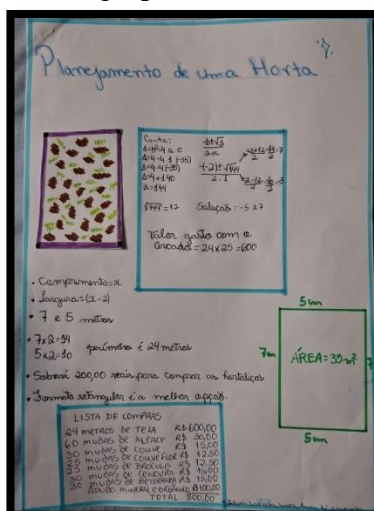 Planejamento de uma Horta
Conta:
Δ=b²-4 a c
Δ=4-4 1 (-35)
Δ=4-4(-35)
Δ=4+140
Δ=144
√144=12
-b±√Δ
2a
-(-2)±√144
2.1
Solução=-5 e 7
Valor gasto com o
cercado=24x25=600
• Comprimento=x
• Largura=(x-2)
• 7 e 5 metros
• 7x2=14
5x2=10
perímetro é 24 metros
• Sobrará 200,00 reais para comprar as hortaliças
• Formato retangular é a melhor opção.
5m
7m
ÁREA=35m²
5m
LISTA DE COMPRAS
24 METROS DE TELA R$ 600,00
60 MUDAS DE ALFACE R$ 30,00
30 MUDAS DE COUVE R$ 15,00
25 MUDAS DE COUVE FLOR R$ 12,50
25 MUDAS DE BRÓCULIS R$ 12,50
30 MUDAS DE CENOURA R$ 15,00
30 MUDAS DE BETERRABA R$ 15,00
ADUBO MINERAL E ORGÂNICO R$ 100,00
TOTAL 800,00